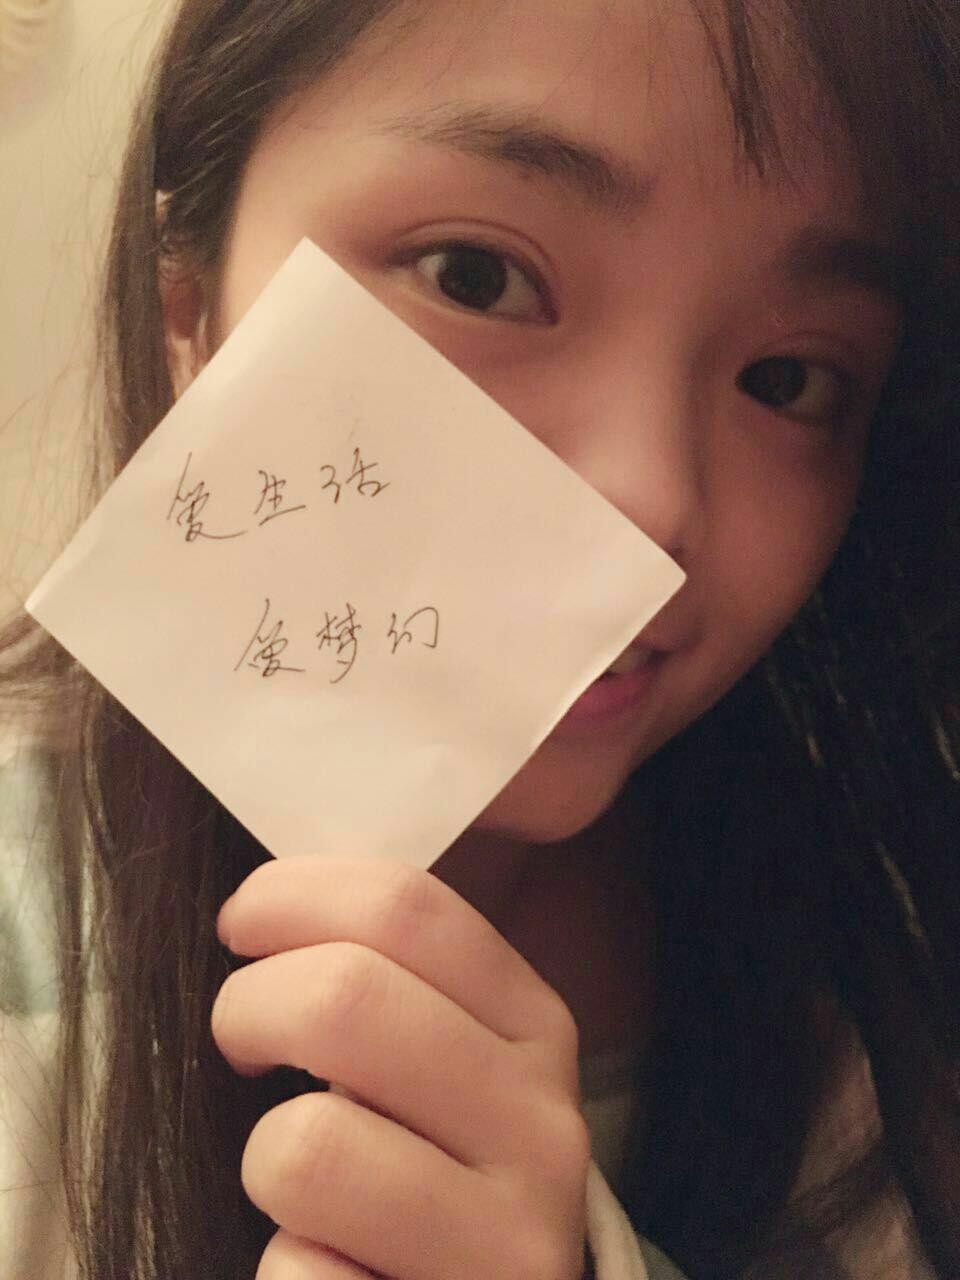 爱生活
爱梦幻